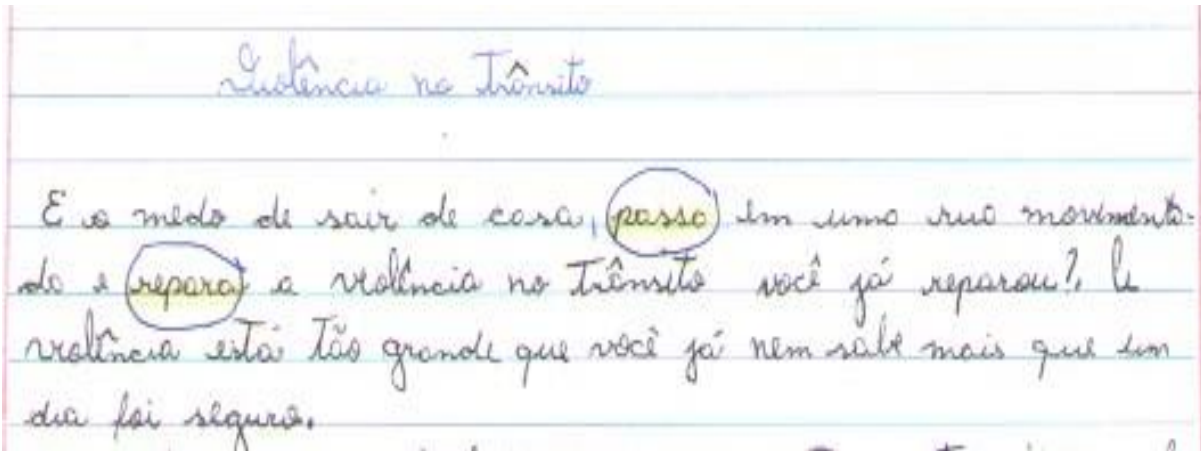 Violência no Trânsito
E o medo de sair de casa, passo em uma rua movimenta-
da e repara a violência no Trânsito você já reparou?. A
violência está tão grande que você já nem sabe mais que um
dia foi seguro.